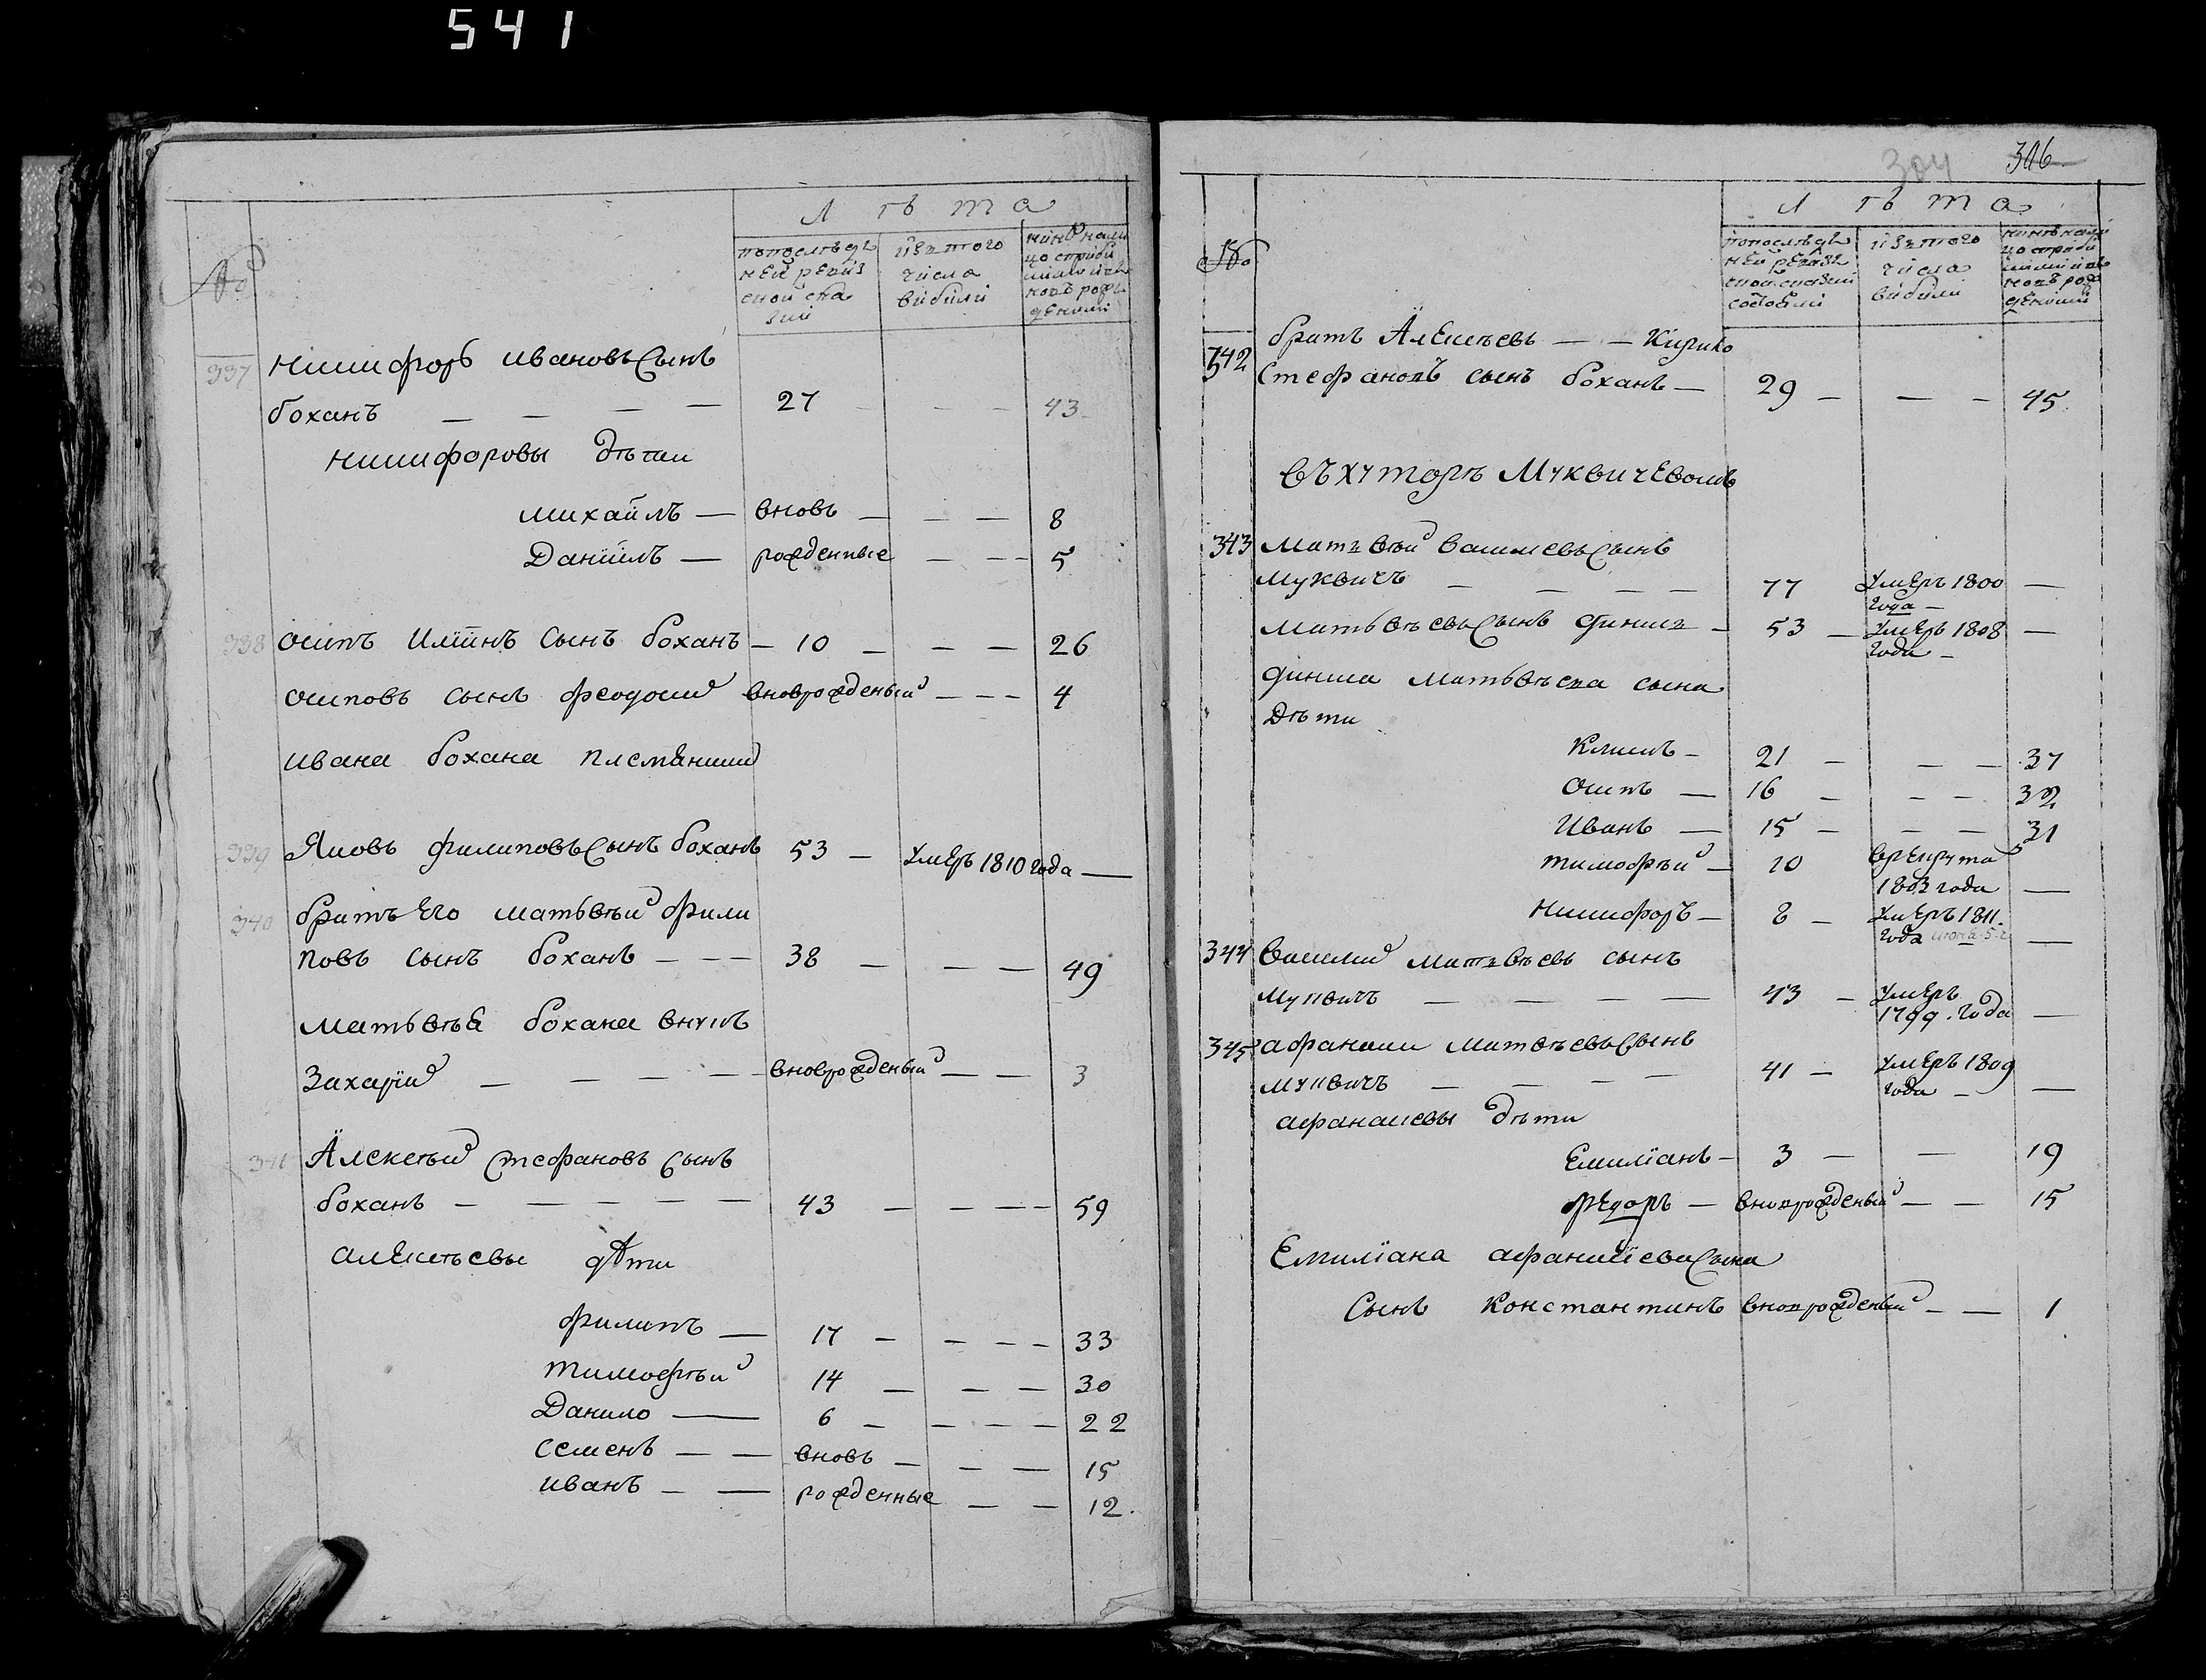 541
Лѣта
№
попослѣд
ней ревиз
ской ска
зки
изъ того
числа
выбыли
337 Никифоръ Ивановъ Сынъ
боханъ — — — — 27 — — — 43
Никифоровы дѣти
михайлъ — вновь — — — 8
Данїилъ — рожденные — — — 5
338 осипъ Илїинъ Сынъ боханъ — 10 — — — 26
осиповъ сынъ феодосий вноврожденый — — — 4
ивана бохана племянники
339 Яковъ филиповъ Сынъ боханъ 53 — умеръ 1810 года —
340 братъ его матьвѣй фили
повъ сынъ боханъ — — — 38 — — — 49
матьвѣя бохана внукъ
Захарїй — — — — вноврожденый — — 3
341 Алексѣй Стефановъ сынъ
боханъ — — — — — 43 — — — — 59
алексѣевы дѣти
филипъ — 17 — — — — 33
тимофѣй 14 — — — 30
Данило — 6 — — — — 22
семенъ — — вновь — — — 15
иванъ — — рожденные — — 12.
304 306
Лѣта
№
попослѣд
ней ревиз
изъ того
числа
выбыли
братъ Алексѣевъ — — Кирило
342 Стефановъ сынъ боханъ — 29 — — — 45.
Въ хуторѣ Муквичевомъ
343 матъвѣй васильевъ Сынъ
муквичъ — — — — 77 умеръ 1800 —
года —
матьвѣевъ Сынъ финик — 53 — умеръ 1808 —
года —
матьвѣева сына
дѣти
Климъ — 21 — — — 37
осипъ — 16 — — — 32
Иванъ — 15 — — — 31
тимофѣй — 10 врекрута
1803 года —
никифоръ — 8 — умеръ 1811.
года —
344 василий матъвѣевъ сынъ
муквичъ — — — — 43 — умеръ
1799. года —
345 афанасий матвѣевъ Сынъ
муквичъ — — — — 41 — умеръ 1809
года — —
афанасиевы дѣти
Емилїанъ — 3 — — 19
ѳедоръ — вноврожденый — — 15
Емилїана афанасїева Сына
Сынъ Константинъ вноврожденый — — 1